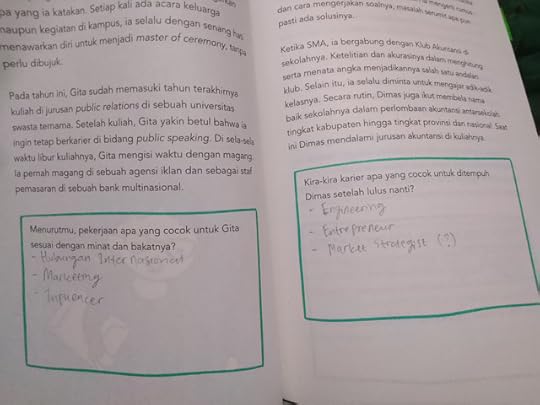 pa yang ia katakan. Setiap kali ada acara keluarga
maupun kegiatan di kampus, ia selalu dengan senang hati
menawarkan diri untuk menjadi master of ceremony, tanpa
perlu dibujuk.
Pada tahun ini, Gita sudah memasuki tahun terakhirnya
kuliah di jurusan public relations di sebuah universitas
swasta ternama. Setelah kuliah, Gita yakin betul bahwa ia
ingin tetap berkarier di bidang public speaking. Di sela-sela
waktu libur kuliahnya, Gita mengisi waktu dengan magang.
Ia pernah magang di sebuah agensi iklan dan sebagai staf
pemasaran di sebuah bank multinasional.
Menurutmu, pekerjaan apa yang cocok untuk Gita
sesuai dengan minat dan bakatnya?
- Hubungan Internasional
- Marketing
- Influencer
dan cara mengerjakan soalnya, masalah serumit apa pun
pasti ada solusinya.
Ketika SMA, ia bergabung dengan Klub Akuntansi di
sekolahnya. Ketelitian dan akurasinya dalam menghitung
serta menata angka menjadikannya salah satu andalan
klub. Selain itu, ia selalu diminta untuk mengajar adik-adik
kelasnya. Secara rutin, Dimas juga ikut membela nama
baik sekolahnya dalam perlombaan akuntansi antarsekolah,
tingkat kabupaten hingga tingkat provinsi dan nasional. Saat
ini Dimas mendalami jurusan akuntansi di kuliahnya.
Kira-kira karier apa yang cocok untuk ditempuh
Dimas setelah lulus nanti?
- Engineering
- Entrepreneur
- Market Strategist (?)